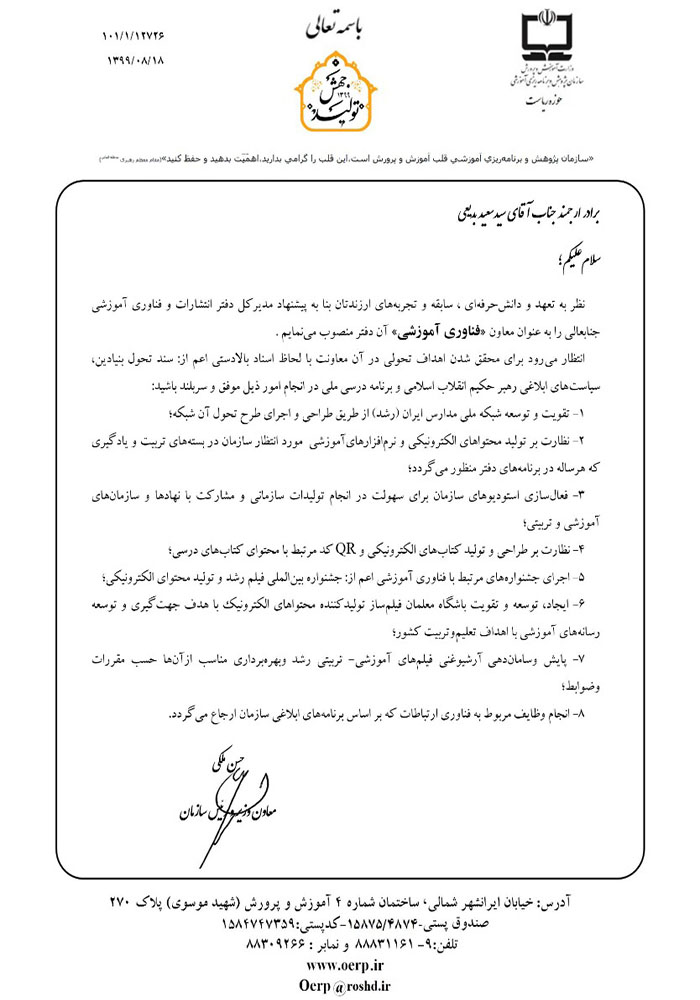 باسمه تعالی
۱۰۱/۱/۱۲۷۲۶
۱۳۹۹/۰۸/۱۸
جهش
۱۳۹۹
تولید
وزارت آموزش و پرورش
سازمان پژوهش و برنامه‌ریزی آموزشی
حوزه ریاست
«سازمان پژوهش و برنامه‌ریزی آموزشی قلب آموزش و پرورش است.این قلب را گرامي بدارید.اهمیّت بدهید و حفظ کنید»(مقام معظم رهبری)
برادر ارجمند جناب آقای سید سعید بدیعی
سلام علیکم؛
نظر به تعهد و دانش‌حرفه‌ای ، سابقه و تجربه‌های ارزندتان بنا به پیشنهاد مدیرکل دفتر انتشارات و فناوری آموزشی
جنابعالی را به عنوان معاون «فناوری آموزشی» آن دفتر منصوب می‌نمایم .
انتظار می‌رود برای محقق شدن اهداف تحولی در آن معاونت با لحاظ اسناد بالادستی اعم از: سند تحول بنیادین،
سیاست‌های ابلاغی رهبر حکیم انقلاب اسلامی و برنامه درسی ملی در انجام امور ذیل موفق و سربلند باشید:
۱- تقویت و توسعه شبکه ملی مدارس ایران (رشد) از طریق طراحی و اجرای طرح تحول آن شبکه؛
۲- نظارت بر تولید محتواهای الکترونیکی و نرم‌افزارهای‌آموزشی مورد انتظار سازمان در بسته‌های تربیت و یادگیری
که هرساله در برنامه‌های دفتر منظور می‌گردد؛
۳- فعال‌سازی استودیوهای سازمان برای سهولت در انجام تولیدات سازمانی و مشارکت با نهادها و سازمان‌های
آموزشی و تربیتی؛
۴- نظارت بر طراحی و تولید کتاب‌های الکترونیکی و QR کد مرتبط با محتوای کتاب‌های درسی؛
۵- اجرای جشنواره‌های مرتبط با فناوری آموزشی اعم از: جشنواره بین‌المللی فیلم رشد و تولید محتوای الکترونیکی؛
۶- ایجاد، توسعه و تقویت باشگاه معلمان فیلم‌ساز تولیدکننده محتواهای الکترونیک با هدف جهت‌گیری و توسعه
رسانه‌های آموزشی با اهداف تعلیم‌وتربیت کشور؛
۷- پایش وسامان‌دهی آرشیوغنی فیلم‌های آموزشی- تربیتی رشد وبهره‌برداری مناسب ازآن‌ها حسب مقررات
وضوابط؛
۸- انجام وظایف مربوط به فناوری ارتباطات که بر اساس برنامه‌های ابلاغی سازمان ارجاع می‌گردد.
حسن ملکی
معاون وزیر و رئیس سازمان
آدرس: خیابان ایرانشهر شمالی، ساختمان شماره ۴ آموزش و پرورش (شهید موسوی) پلاک ۲۷۰
صندوق پستی-۱۵۸۷۵/۴۸۷۴-کدپستی:۱۵۸۴۷۴۷۳۵۹
تلفن:۹- ۸۸۸۳۱۱۶۱ و نمابر : ۸۸۳۰۹۲۶۶
www.oerp.ir
Oerp@roshd.ir